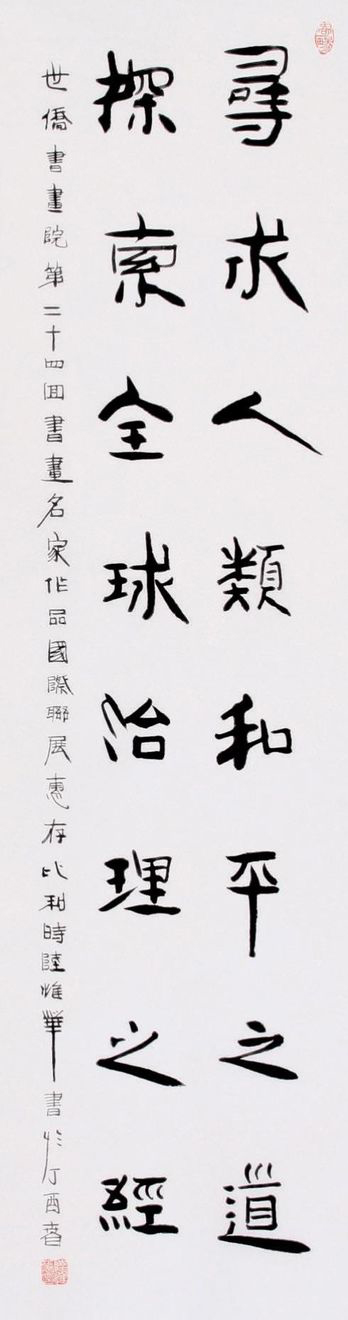 尋求人類和平之道
探索全球治理之經
世僑書畫院第二十四回書畫名家作品國際聯展惠存比利時陸惟華書於丁酉春